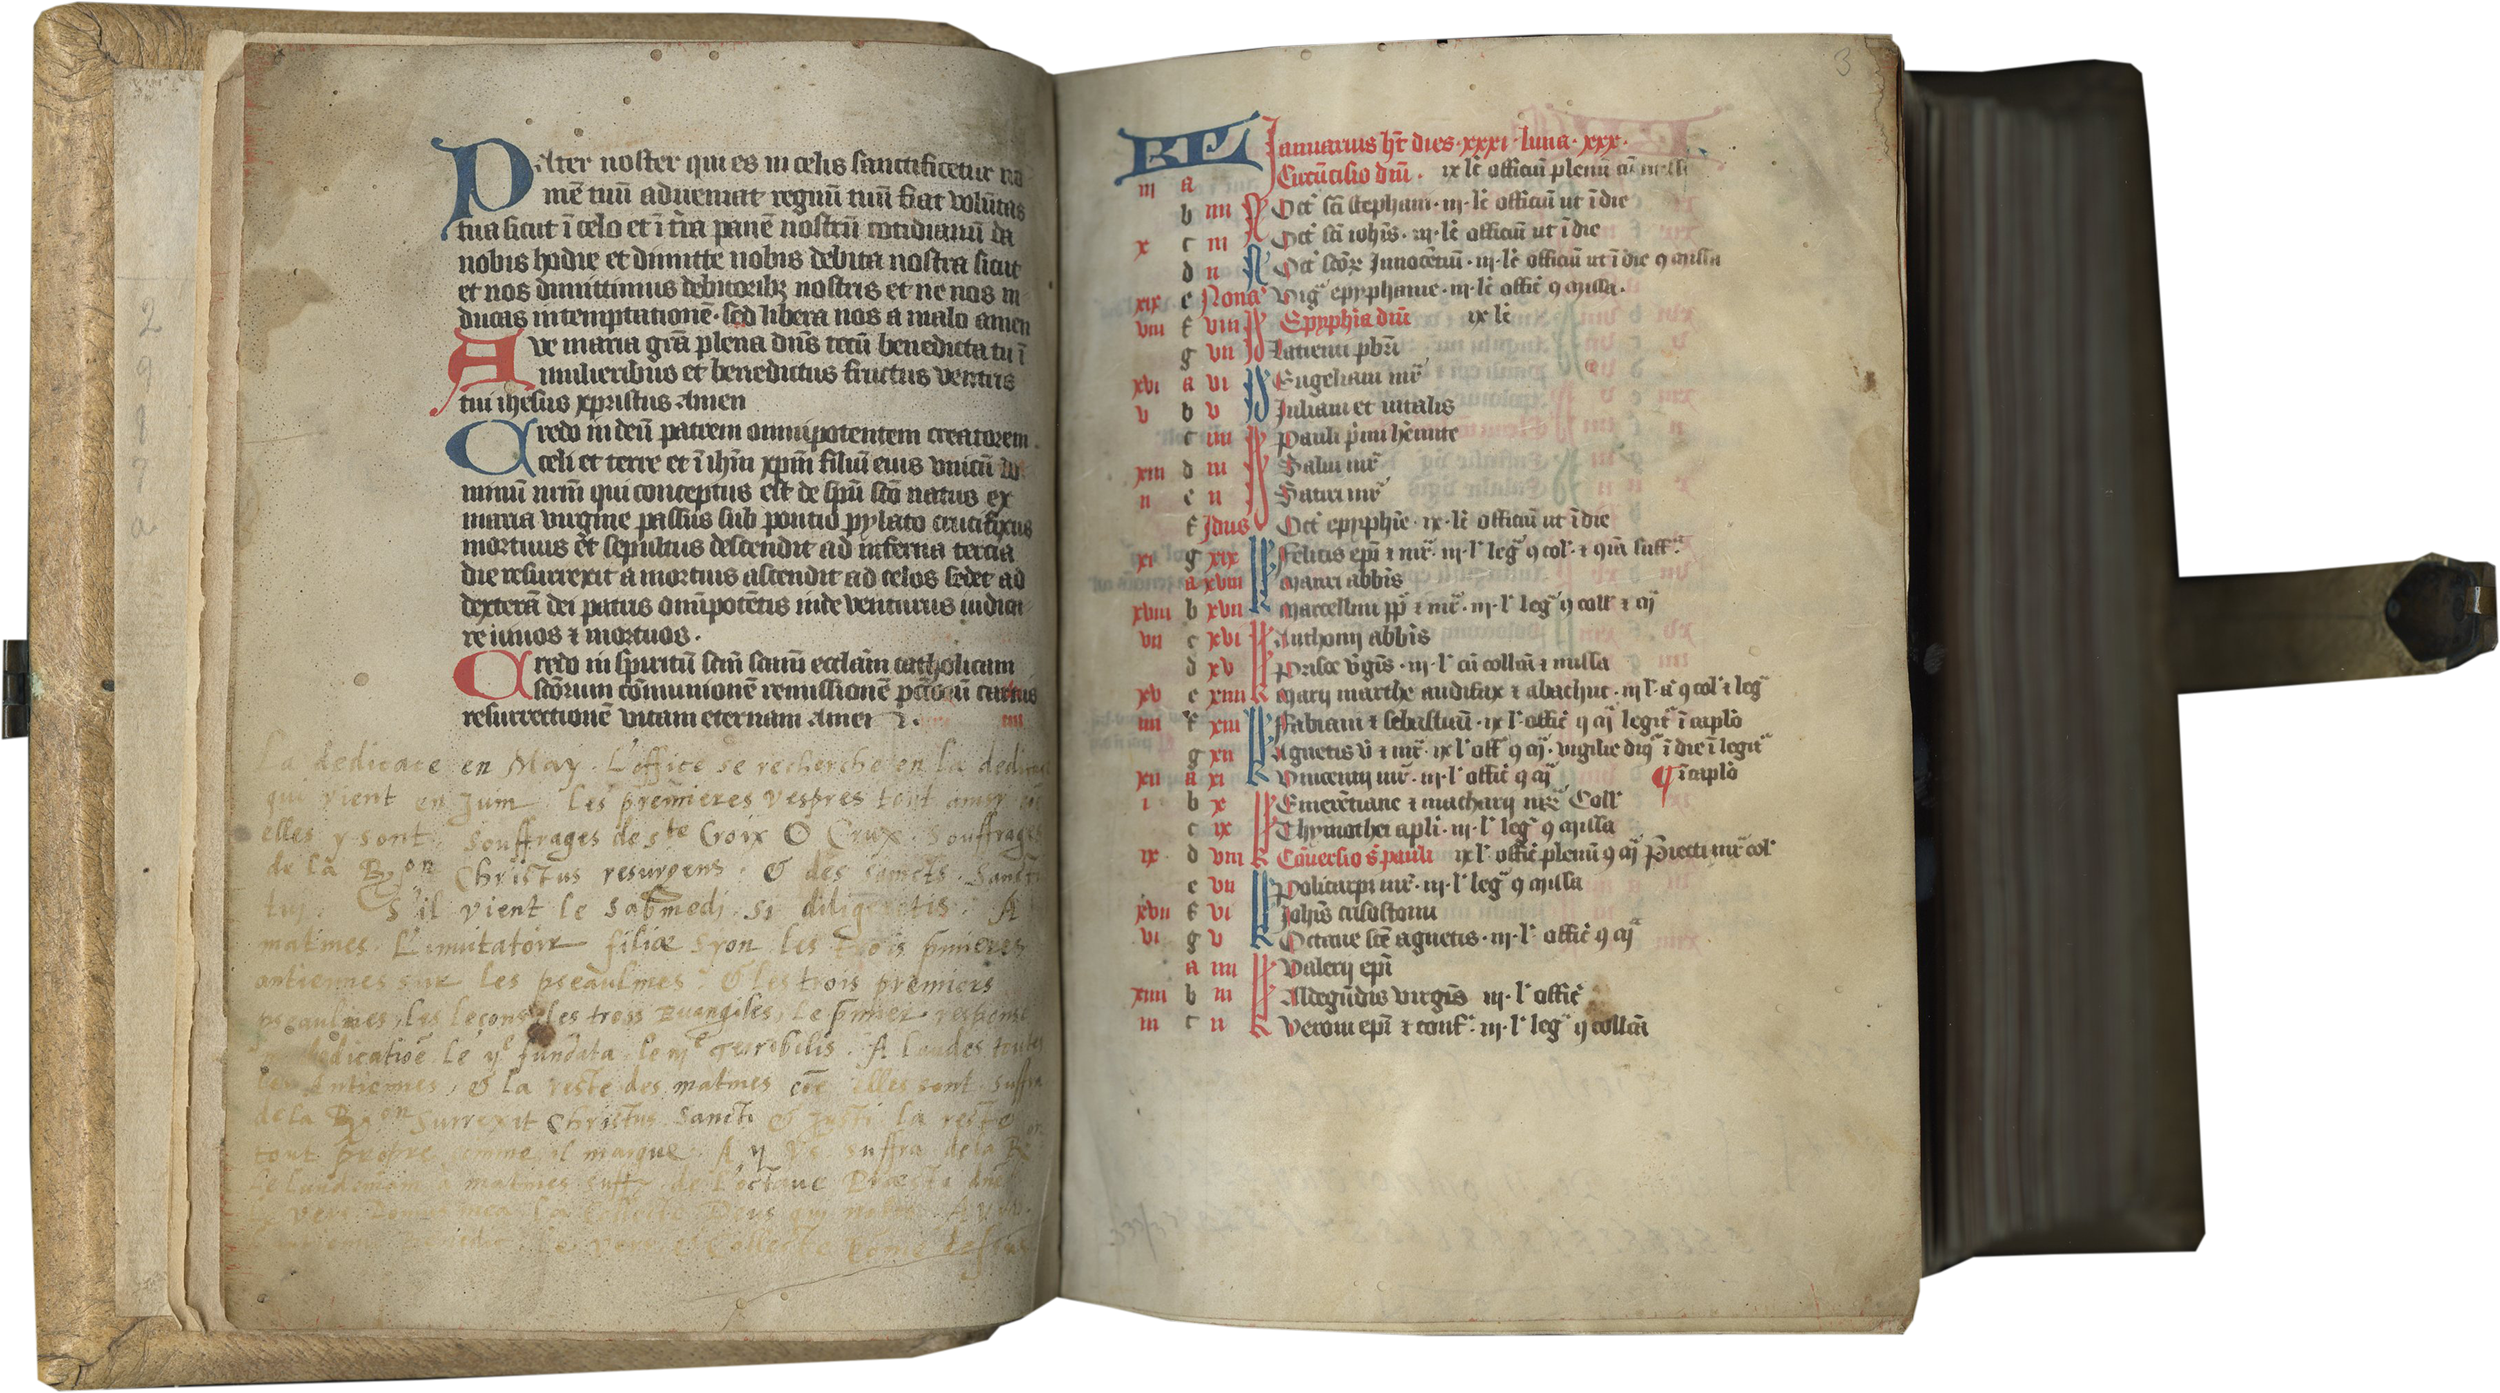 Pater noster qui es in celis sanctificetur no
mē tuū adueniat regnū tuū fiat volūtas
tua sicut ī celo et ī t̄ra panē nostrū cotidianū da
nobis hodie et dimitte nobis debita nostra sicut
et nos dimittimus debitoribꝫ nostris et ne nos in
ducas in temptationē · sed libera nos a malo amen
Aue maria grā plena dn̄s tecū benedicta tu ī
mulieribus et benedictus fructus ventris
tui ihesus xpristus Amen
Credo in deū patrem omnipotentem creatorem
celi et terre et ī ihm̄ xpm̄ filiū eius vnicū do
minū nrm̄ qui conceptus est de spū sc̄o natus ex
maria virgine passus sub pontio pylato crucifixus
mortuus et sepultus descendit ad inferna tercia
die resurrexit a mortuis ascendit ad celos sedet ad
dexterā dei patris omīpotētis inde venturus iudica
re viuos ⁊ mortuos ·
Credo in spiritū sc̄m sc̄am ecclām catholicam
sc̄orum cōmunionē remissionē pctōrū carnis
resurrectionē vitam eternam Amen
La dedicace en May. L'office se recherche en la dedicace
qui vient en Juin. les premieres vespres tout ainsi
elles y sont. Souffrages de ste Croix O Crux. Souffrages
de la Rōn Christus resurgens. & des saincts. Sancti
tui. S'il vient le sabmedi. si diligeretis. A
matines. L'inuitatoir filiæ Syon. les trois pmieres
antiennes sur les pseaulmes. & les trois premiers
pseaulmes, les leçons des trois Euangiles, le pmier respons
dedicatiōe le ije fundata le iije Terribilis. A laudes toutes
les Antiennes, & la reste des matines cōe elles sont. Suffra
de la Rōn Surrexit Christus Sancti & Iusti la reste
tout propre comme il marque. A ij Vs. suffra de la R
Le landemain a matines suff de l'octaue
vers Domus mea. la collecte Deus qui nobis
vers & Collecte come dessus
3
KL Januarius ht̄ dies · xxxi · luna · xxx ·
iij a Circūcisio dn̄i · ix lc̄ officiū plenū cū missa
b iiij N Oct' sc̄i stephani · iij · lc̄ officiū ut ī die
x c iij N Oct' sc̄i ioh̄is · iij · lc̄ officiū ut ī die
d ij N Oct' sc̄orꝫ Innocētiū · iij · lc̄ officiū ut ī die ꝯ missa
xix e Nonas Vigᵃ epyphanie · iij · lc̄ offic̄ ꝯ missa ·
viij f viij Id Epyphīa dn̄i ix lc̄
g vij Id Luciani pbr̄i
xvi a vi Id Eugeliani mr̄
v b v Id Juliani et vitalis
c iiij Id Pauli p̄mi hēmite
xiij d iij Id Saluii mr̄
ij e ij Id Satiri mr̄
f Idus Oct' epyphīe · ix · lc̄ officiū ut ī die
xi g xix kl Felicis ep̄i ⁊ mr̄ · iij · l' legᵃ ꝯ col' ⁊ qᵃ suffᵃ
a xviij kl Mauri abbīs
xviij b xvij kl Marcellini pp̄ ⁊ mr̄ · iij · l' legᵃ ꝯ coll' ⁊ cᵃ
vij c xvi kl Anthonij abbīs
d xv kl Prisce v̄gīs · iij · l' cū collcā ⁊ missa
xv e xiiij kl Marij marthe audifax ⁊ abachuc · iij l' ꝯ col' ⁊ legᵃ
iiij f xiij kl Fabiani ⁊ sebastiani · ix l' offic̄ ꝯ cᵃ legit ī caplo
g xij kl Agnetis v̄ ⁊ mr̄ · ix l' off ꝯ cᵃ · vigilie ī die ī legit
xij a xi kl Vincentij mr̄ · iij · l' offic̄ ꝯ cᵃ ¶ ī caplo
i b x kl Emerētiane ⁊ macharij mr̄ꝫ Coll'
c ix kl Thymothei apli · iij · l' legᵃ ꝯ missa
ix d viij kl Cōuersio s̄ pauli ix l' offic̄ plenū ꝯ cᵃ Proiecti mr̄ col'
e vij kl Policarpi mr̄ · iij · l' legᵃ ꝯ missa
xvij f vi kl Joh̄is crisostomi
vi g v kl Octaue sc̄e agnetis · iij · l' offic̄ ꝯ cᵃ
a iiij kl Valerij ep̄i
xiiij b iij kl Aldegūdis virgīs iij · l' offic̄
iij c ij kl Veroni ep̄i ⁊ conf · iij · l' legᵃ ꝯ collcā